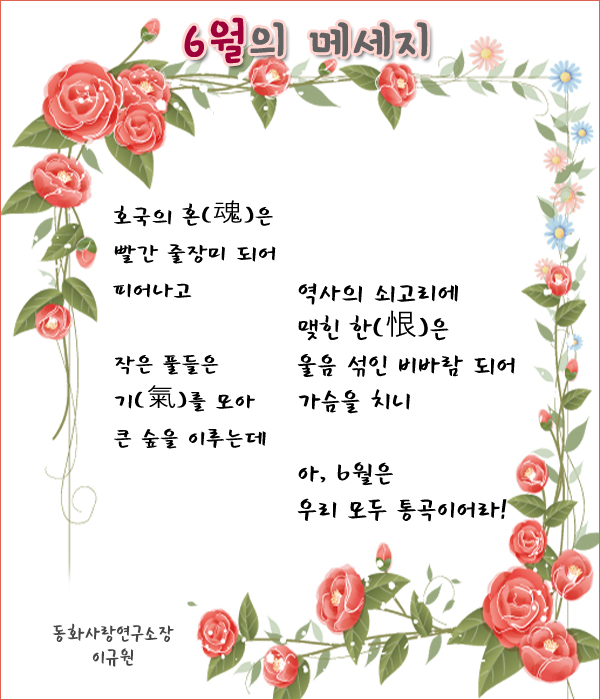 6월의 메세지
호국의 혼(魂)은
빨간 줄장미 되어
피어나고
작은 풀들은
기(氣)를 모아
큰 숲을 이루는데
역사의 쇠고리에
맺힌 한(恨)은
울음 섞인 비바람 되어
가슴을 치니
아, 6월은
우리 모두 통곡이어라!
동화사랑연구소장
이규원